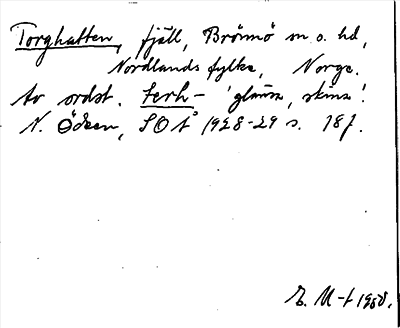 Torghatten, fjäll, Brönnö sn o. hd,
Nordlands fylke, Norge.
Av ordst. terh- 'glänsa, skina'.
N. Ödeen, SOÅ 1928-29 s. 18 f.
E. M-t 1958.